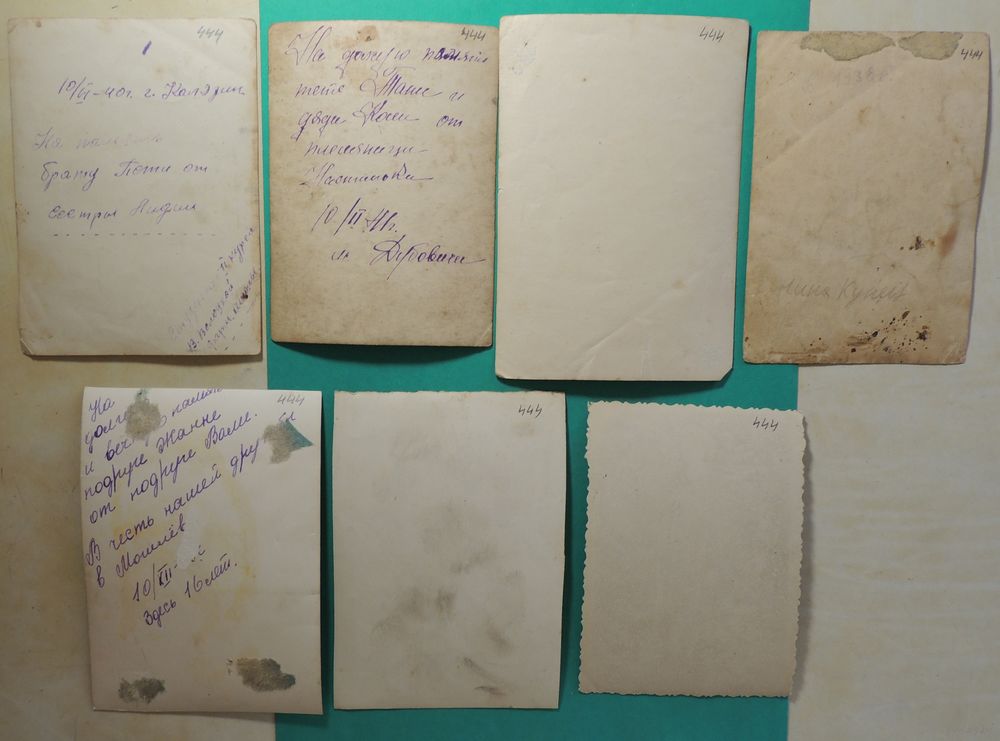 444
10/VI-40г. г. Калязин
На память
брату Пете от
сестры Лидии
курса
В. Волоцкой
школы
444
На долгую память
тете Тани и
дяди Коли от
племяници
10/II-41г.
Дубовичи
444
444
1938г.
Нина
444
На
долгую
и вечную память
подруге Жанне
от подруги Вали.
В честь нашей дружбы
в Могилёв
10/XII
Здесь 16 лет.
444
444